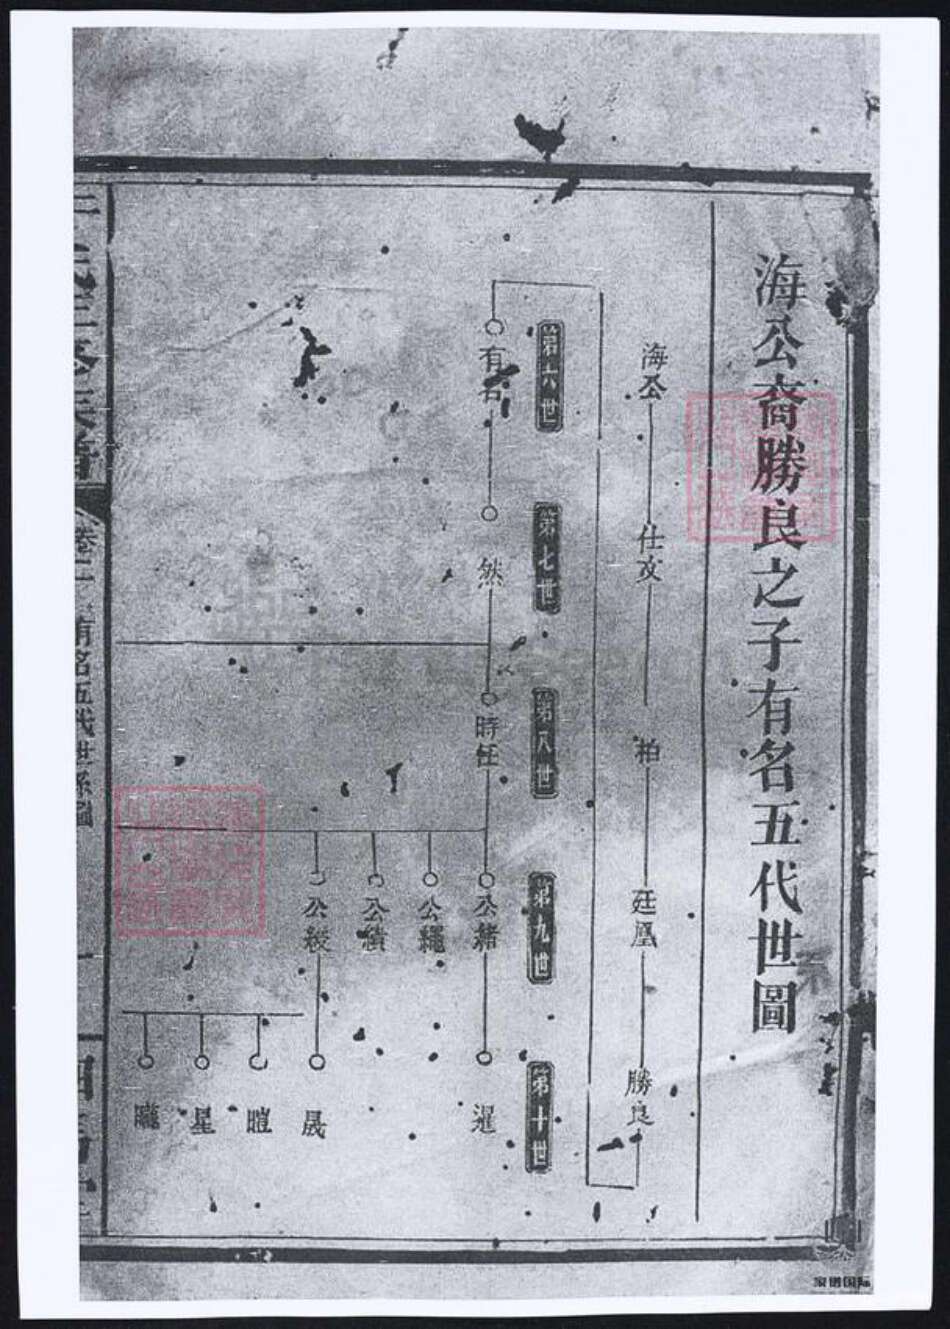 海公裔勝良之子有名五代世圖
海公 仕文 柏 廷鳳 勝良
第六世 第七世 第八世 第九世 第十世
有名 然 時任 公緒 暹
公繩
公績
公綬 晟
暟
星
曨
有名五代世系圖
家谱国际